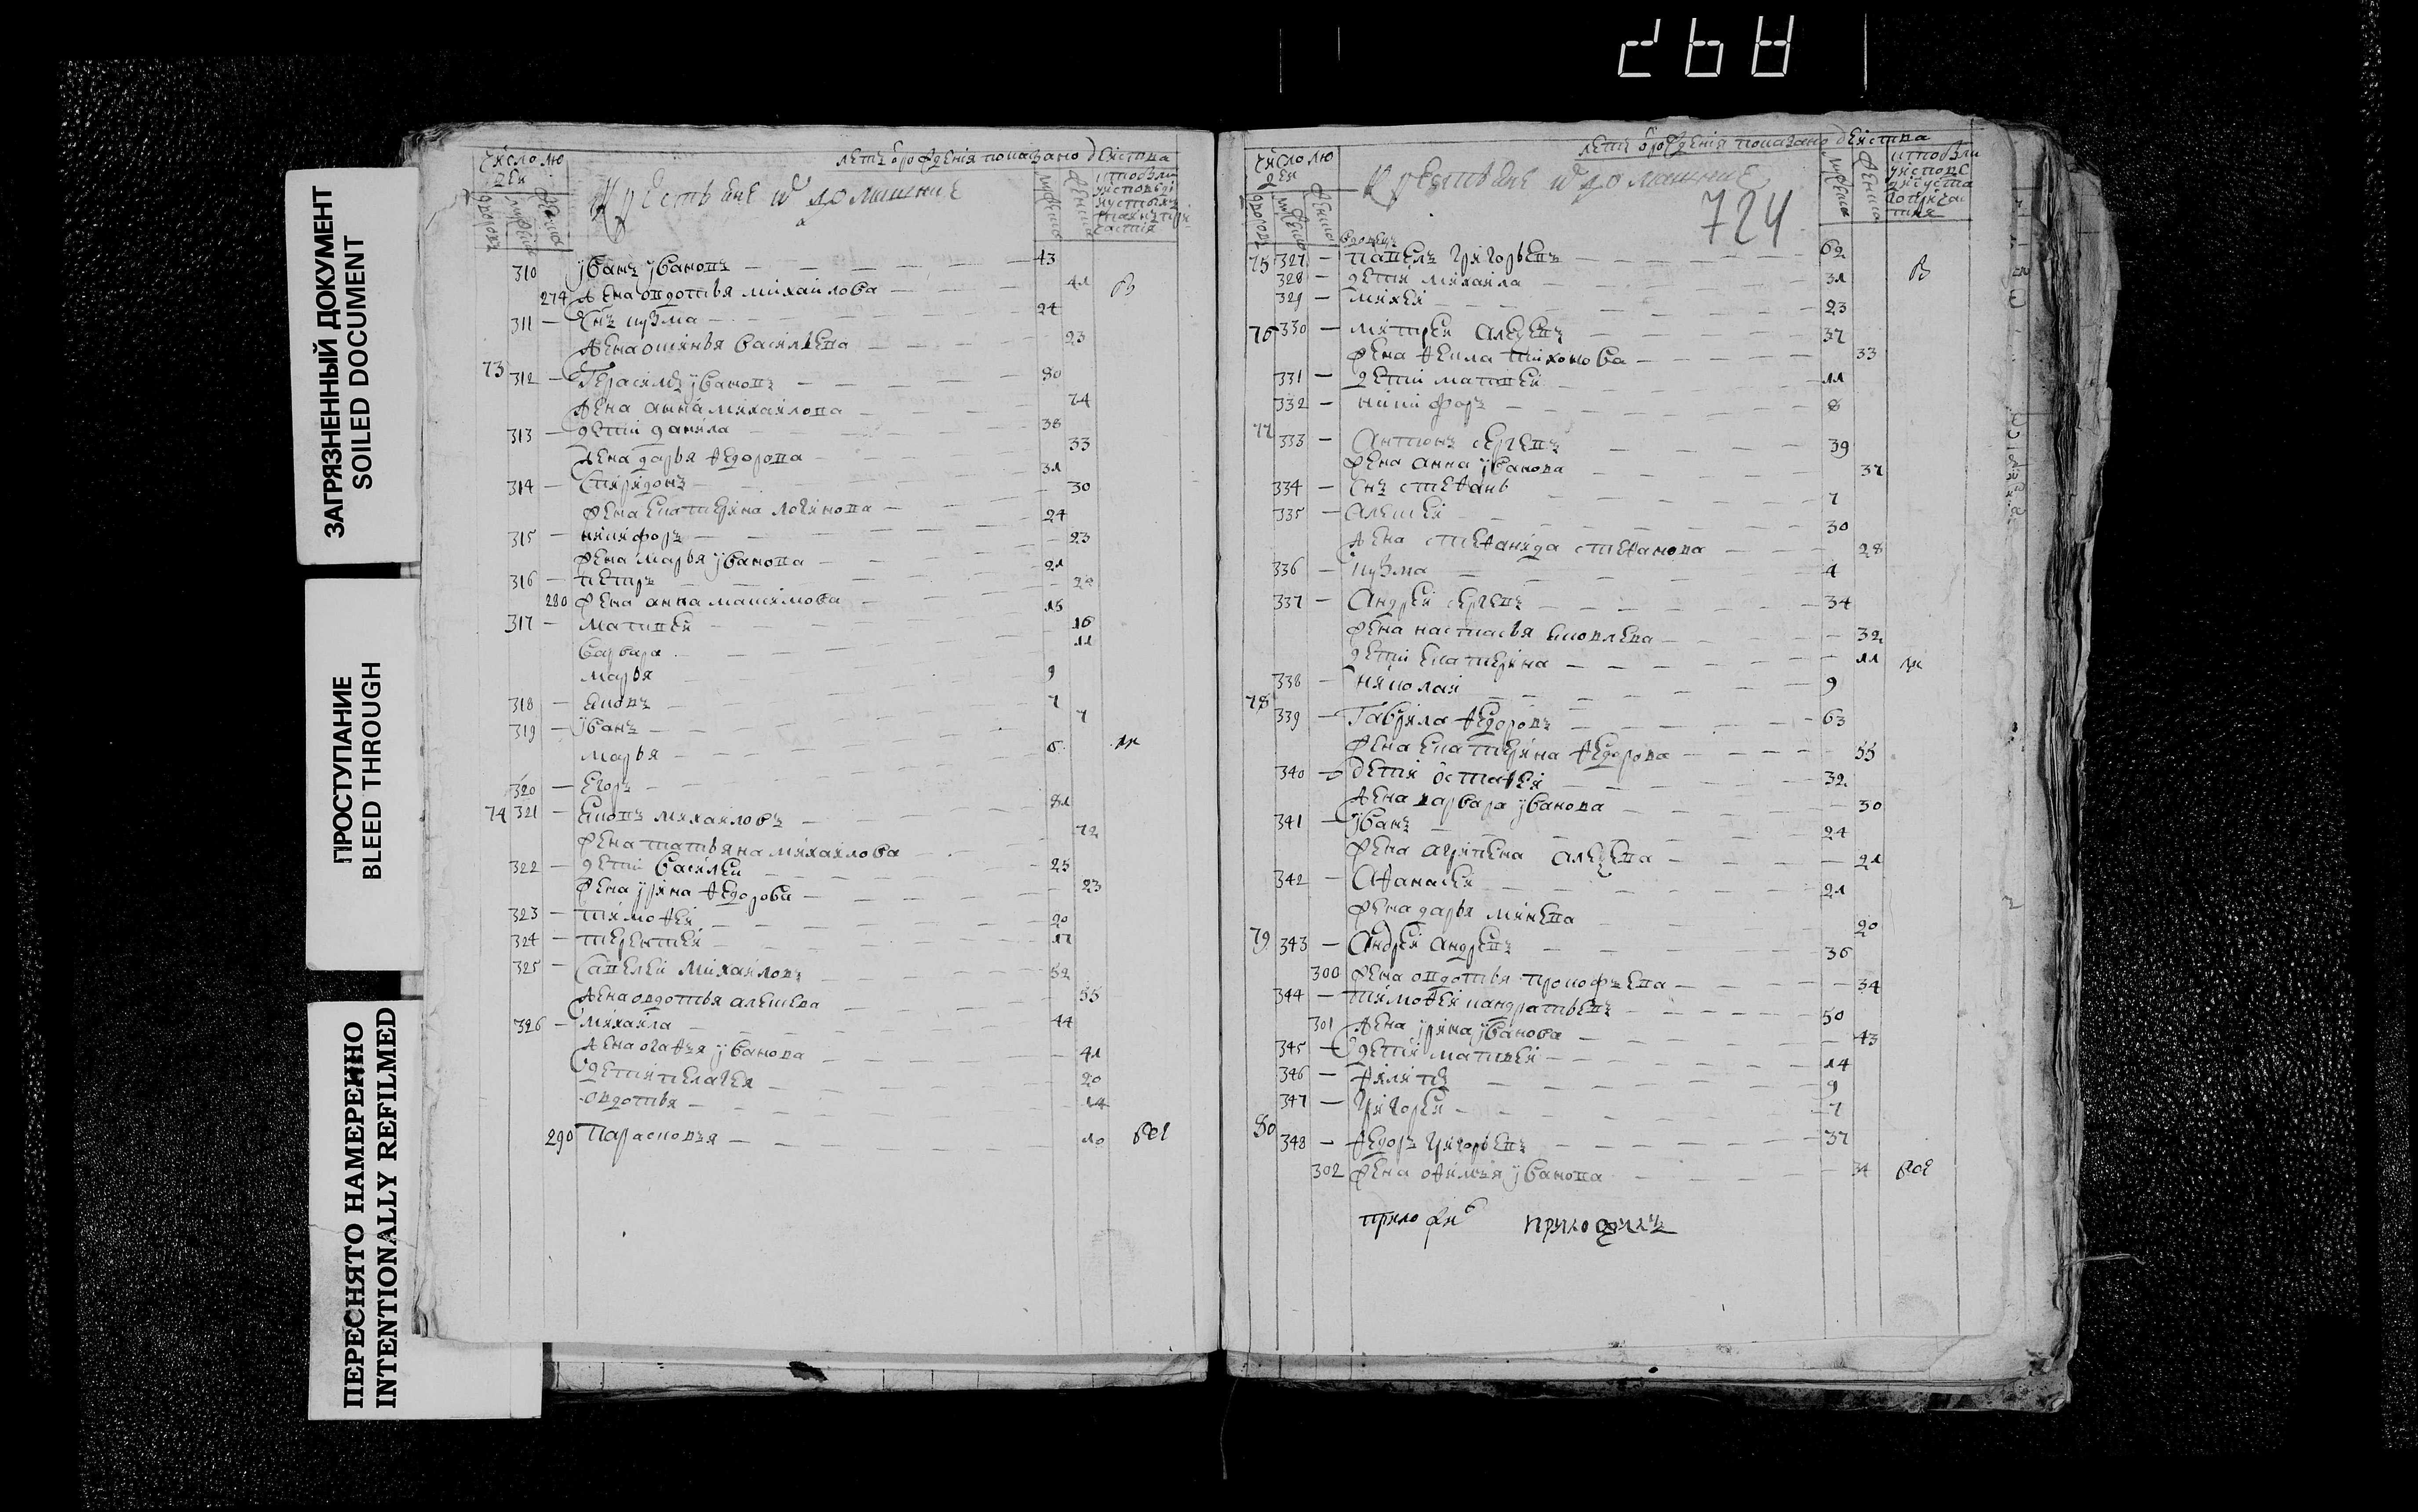 ЗАГРЯЗНЕННЫЙ ДОКУМЕНТ
SOILED DOCUMENT
ПРОСТУПАНИЕ
BLEED THROUGH
ПЕРЕСНЯТО НАМЕРЕННО
INTENTIONALLY REFILMED
число лю
дей
летъ ѿ рождения показано действа
Крестьяне и домашние
310 Иванъ Ивановъ 43
274 жена овдотья михайлова 41
311 снъ кузма 24
жена офимья васильева 23
73 312 Герасимъ Ивановъ 80
жена анна михайлова 74
313 дети данила 38
жена дарья федорова 33
314 спиридонъ 31
жена екатерина логинова 30
315 никифоръ 24
жена марья Иванова 23
316 петръ 21
280 жена анна максимова
317 матвей
варвара 16
марья 11
318 яковъ 9
319 Иванъ 7
марья 7
320 Егоръ 6
74 321 яковъ михайловъ 81
жена татьяна михайлова 72
322 дети василей 25
жена Ирина федорова 23
323 тимофей 20
324 терентей 17
325 савелей михайловъ 52
жена овдотья алексева 55
326 михайла 44
жена огафья Иванова 41
дети пелагея 20
овдотья 14
290 Парасковья 10
число лю
дей
летъ ѿ рождения показано действа
Крестьяне и домашние
724
вдовецъ
75 327 павелъ григорьевъ 62
328 дети михайла 31
329 михей 23
76 330 митрей алексевъ 37
жена фекла тихонова 33
331 дети матвей 11
332 никифоръ 8
77 333 Антонъ сергевъ 39
жена анна Иванова 37
334 снъ стефанъ 7
335 алексей 30
жена стефанида стефанова 28
336 кузма 4
337 Андрей сергевъ 34
жена настасья яковлева 32
дети екатерина 11
338 николай 9
78 339 Гаврила федоровъ 63
жена екатерина федорова 55
340 дети остафей 32
жена варвара Иванова 30
341 Иванъ 24
жена агрипена алексева 21
342 Афанасей 21
жена дарья минева 20
79 343 Андрей андревъ 36
300 жена овдотья прокофьева 34
344 тимофей кандратьевъ 50
301 жена Ирина Иванова 43
345 дети матвей 14
346 филипъ 9
347 григорей 7
80 348 федоръ григорьевъ 37
302 жена офимья Иванова 34